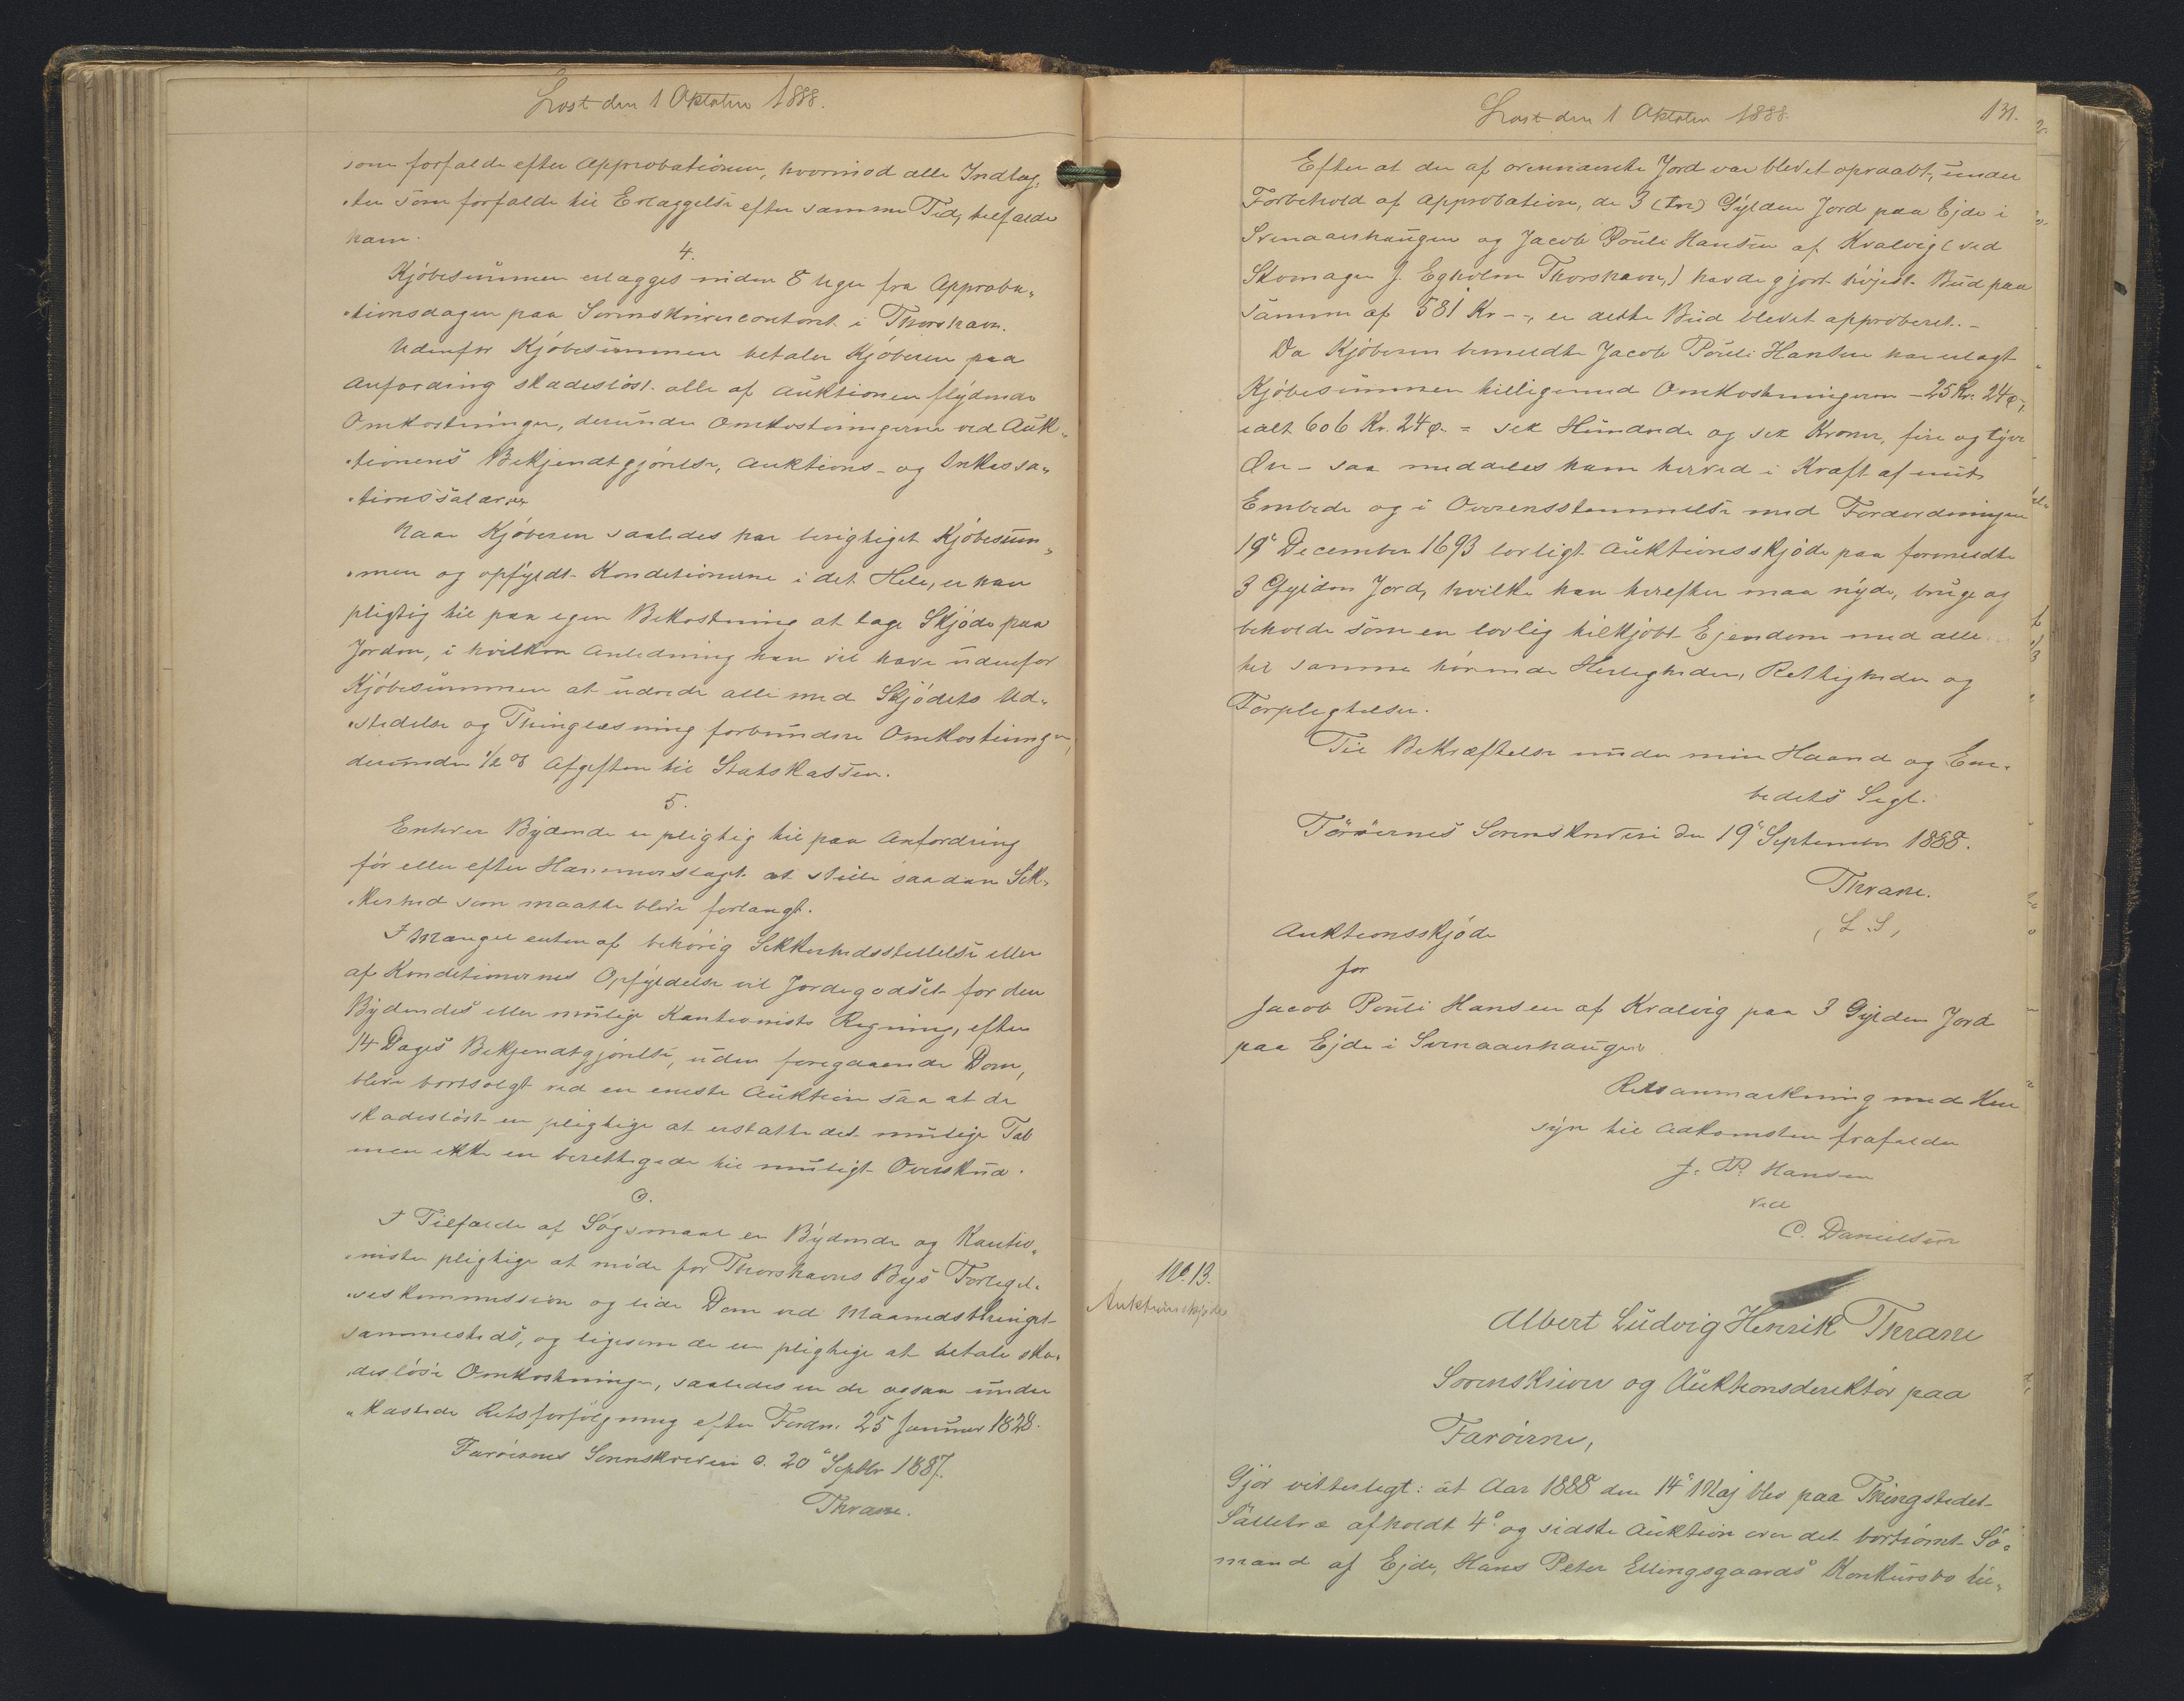 Læst den 1 Oktober 1888.
som forfalde efter Approbationen, hvorimod alle Indtæg-
-ter som forfalde til Erlæggelse efter samme Tid, tilfalde
ham.
4.
Kjøbesummen erlægges inden 8 Uger fra Approba-
-tionsdagen paa Sorenskrivercontoret i Thorshavn.
Udenfor Kjøbesummen betaler Kjøberen paa
Anfordring skadesløst alle af Auktionen flydende
Omkostninger, derunder Omkostningerne ved Auk-
-tionens Bekjendtgjørelse, Auktions- og Inkassa-
-tionssalærer
Naar Kjøberen saaledes har berigtiget Kjøbesum-
-men og opfyldt Konditionerne i det Hele, er han
pligtig til paa egen Bekostning at tage Skjøde paa
Jorden, i hvilken Anledning han vil have udenfor
Kjøbesummen at udrede alle med Skjødets Ud-
-stedelse og Thinglæsning forbundne Omkostninger,
derunder 1/2 % Afgiften til Statskassen.
5.
Enhver Bydende er pligtig til paa Anfordring
før eller efter Hammerslaget at stille saadan Sik-
-kerhed som maatte blive forlangt.
I Mangel enten af behørig Sikkerhedsstillelse eller
af Konditionernes Opfyldelse vil Jordegodset for den
Bydendes eller mulige Kautionists Regning, efter
14 Dages Bekjendtgjørelse, uden foregaaende Dom,
blive bortsolgt ved en eneste Auktion saa at de
skadesløst er pligtige at erstatte det mulige Tab
men ikke er berettigede til muligt Overskud.
6.
I Tilfælde af Søgsmaal er Bydende og Kautio-
-nister pligtige at møde for Thorshavns Bys Forligel-
-seskommission og lide Dom ved Maanedsthinget
sammesteds, og ligesom de er pligtige at betale ska-
-desløse Omkostninger, saaledes er de ogsaa under
-kastede Retsforfølgning efter Fordn. 25 Januar 1828.
Færøernes Sorenskriveri d. 20 Septbr 1887.
Thrane.
Læst den 1 Oktober 1888.
131.
Efter at der af ovennævnte Jord var blevet opraabt, under
Forbehold af Approbation, de 3 (tre) Gylden Jord paa Ejde i
Svinaaerhaugen og Jacob Pouli Hansen af Kvalvig (ved
Skomager J. Egholm Thorshavn,) havde gjort højest Bud paa
samme af 581 Kr --, er dette Bud blevet approberet. -
Da Kjøberen bemeldte Jacob Pouli Hansen har erlagt
Kjøbesummen tilligemed Omkostningerne - 25 Kr. 24 ø,
ialt 606 Kr. 24 ø. = sex Hundrede og sex Kroner, fire og tyve
Øre - saa meddeles ham herved i Kraft af mit
Embede og i Overensstemmelse med Forordningen
19 December 1693 lovligt Auktionsskjøde paa formeldte
3 Gylden Jord, hvilke han herefter maa nyde, bruge og
beholde som en lovlig tilkjøbt Ejendom med alle
til samme hørende Herligheder, Rettigheder og
Forpligtelser.
Til Bekræftelse under min Haand og Em-
bedets Segl.
Færøernes Sorenskriveri den 19 September 1888.
Thrane.
(L.S.)
Auktionsskjøde
for
Jacob Pouli Hansen af Kvalvig paa 3 Gylden Jord
paa Ejde i Svinaaerhaugen
Retsanmærkning med Hen
syn til Adkomsten frafalder
J. P. Hansen
ved
C. Danielsen
No. 13.
Auktionsskjøde
Albert Ludvig Henrik Thrane
Sorenskriver og Auktionsdirektør paa
Færøerne,
Gjør vitterligt: at Aar 1888 den 14 Maj blev paa Thingstedet
Sælletræ afholdt 4 og sidste Auktion over det bortrømt Sø-
mand af Ejde, Hans Peter Ellingsgaards Konkursbo til-